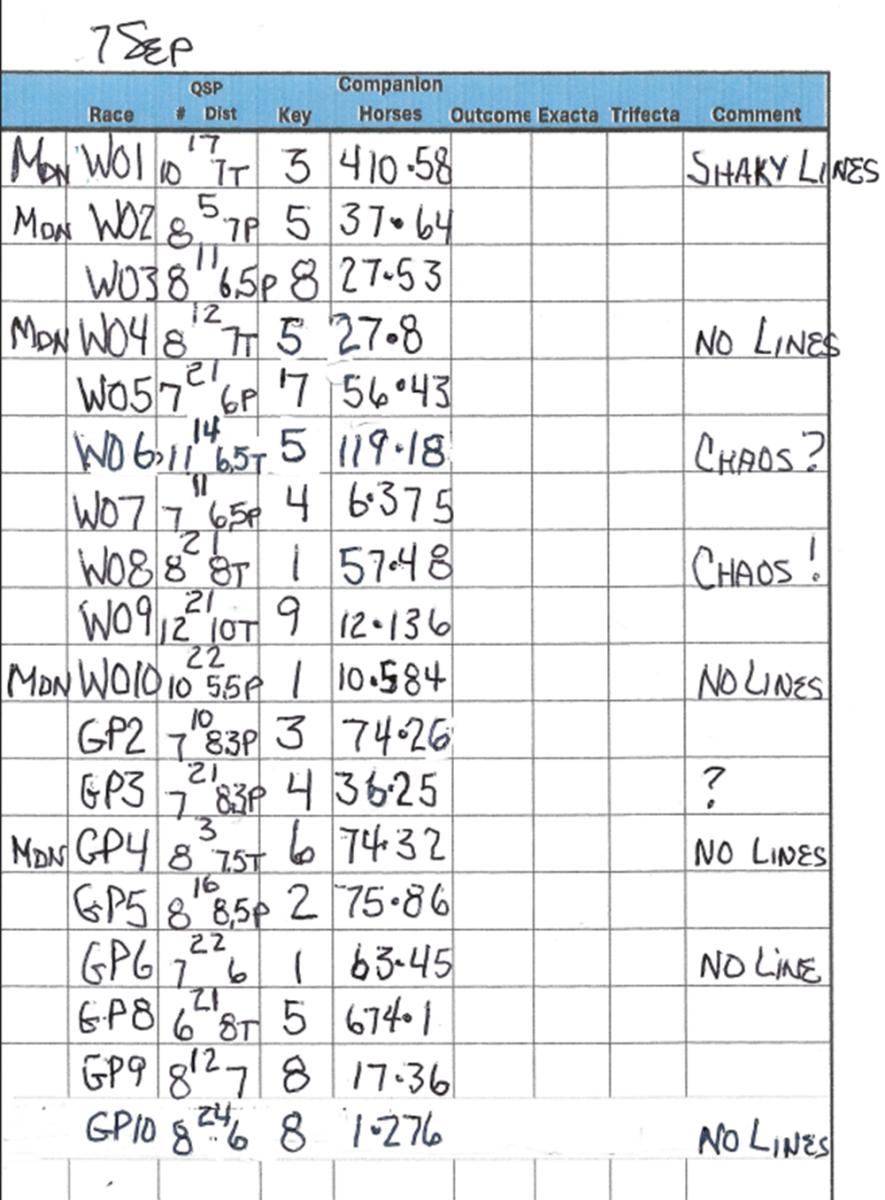 7 SEP
QSP Companion
Race # Dist Key Horses Outcome Exacta Trifecta Comment
MDN WO1 10 17 7T 3 410·58 SHAKY LINES
MDN WO2 8 5 7P 5 37·64
WO3 8 11 6.5P 8 27·53
MDN WO4 8 12 7T 5 27·8 NO LINES
WO5 7 21 6P 7 56·43
WO6 11 14 6.5T 5 119·18 CHAOS?
WO7 7 11 6.5P 4 6·375
WO8 8 21 8T 1 57·48 CHAOS!
WO9 12 21 10T 9 12·136
MDN WO10 10 22 5.5P 1 10·584 NO LINES
GP2 7 10 8.3P 3 74·26
GP3 7 21 8.3P 4 36·25 ?
MDN GP4 8 3 7.5T 6 74·32 NO LINES
GP5 8 16 8.5P 2 75·86
GP6 7 22 6 1 63·45 NO LINE
GP8 6 21 8T 5 674·1
GP9 8 12 7 8 17·36
GP10 8 24 6 8 1·276 NO LINES